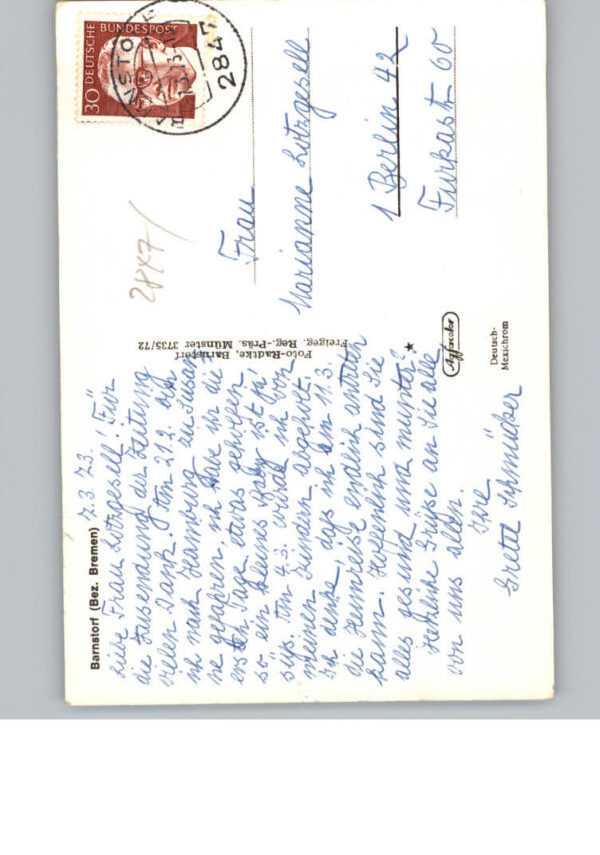 Barnstorf (Bez. Bremen)
7.3.73.
Liebe Frau Lotzgesell! Für
die Zusendung der Zeitung
vielen Dank. Am 21.2. bin
ich nach Hamburg zu Susan
ne gefahren, ich habe ihr die
ersten Tage etwas geholfen,
so ein kleines Baby ist ja
süß. Am 4.3. wurde ich von
meinen Kindern abgeholt.
Ich denke, daß ich am 11.3.
die Heimreise endlich antreten
kann. Hoffentlich sind Sie
alles gesund und munter?
Herzliche Grüße an Sie alle
von uns allen
Ihre
Gretel Schmücker
Foto-Radtke, Barnstorf
Freigeg. Reg.-Präs. Münster 3735/72
★
Agfacolor
Deutsch-
Mexichrom
2847/
30 DEUTSCHE
BUNDESPOST
2847
Frau
Marianne Lotzgesell
1 Berlin 42
Furkastr. 60